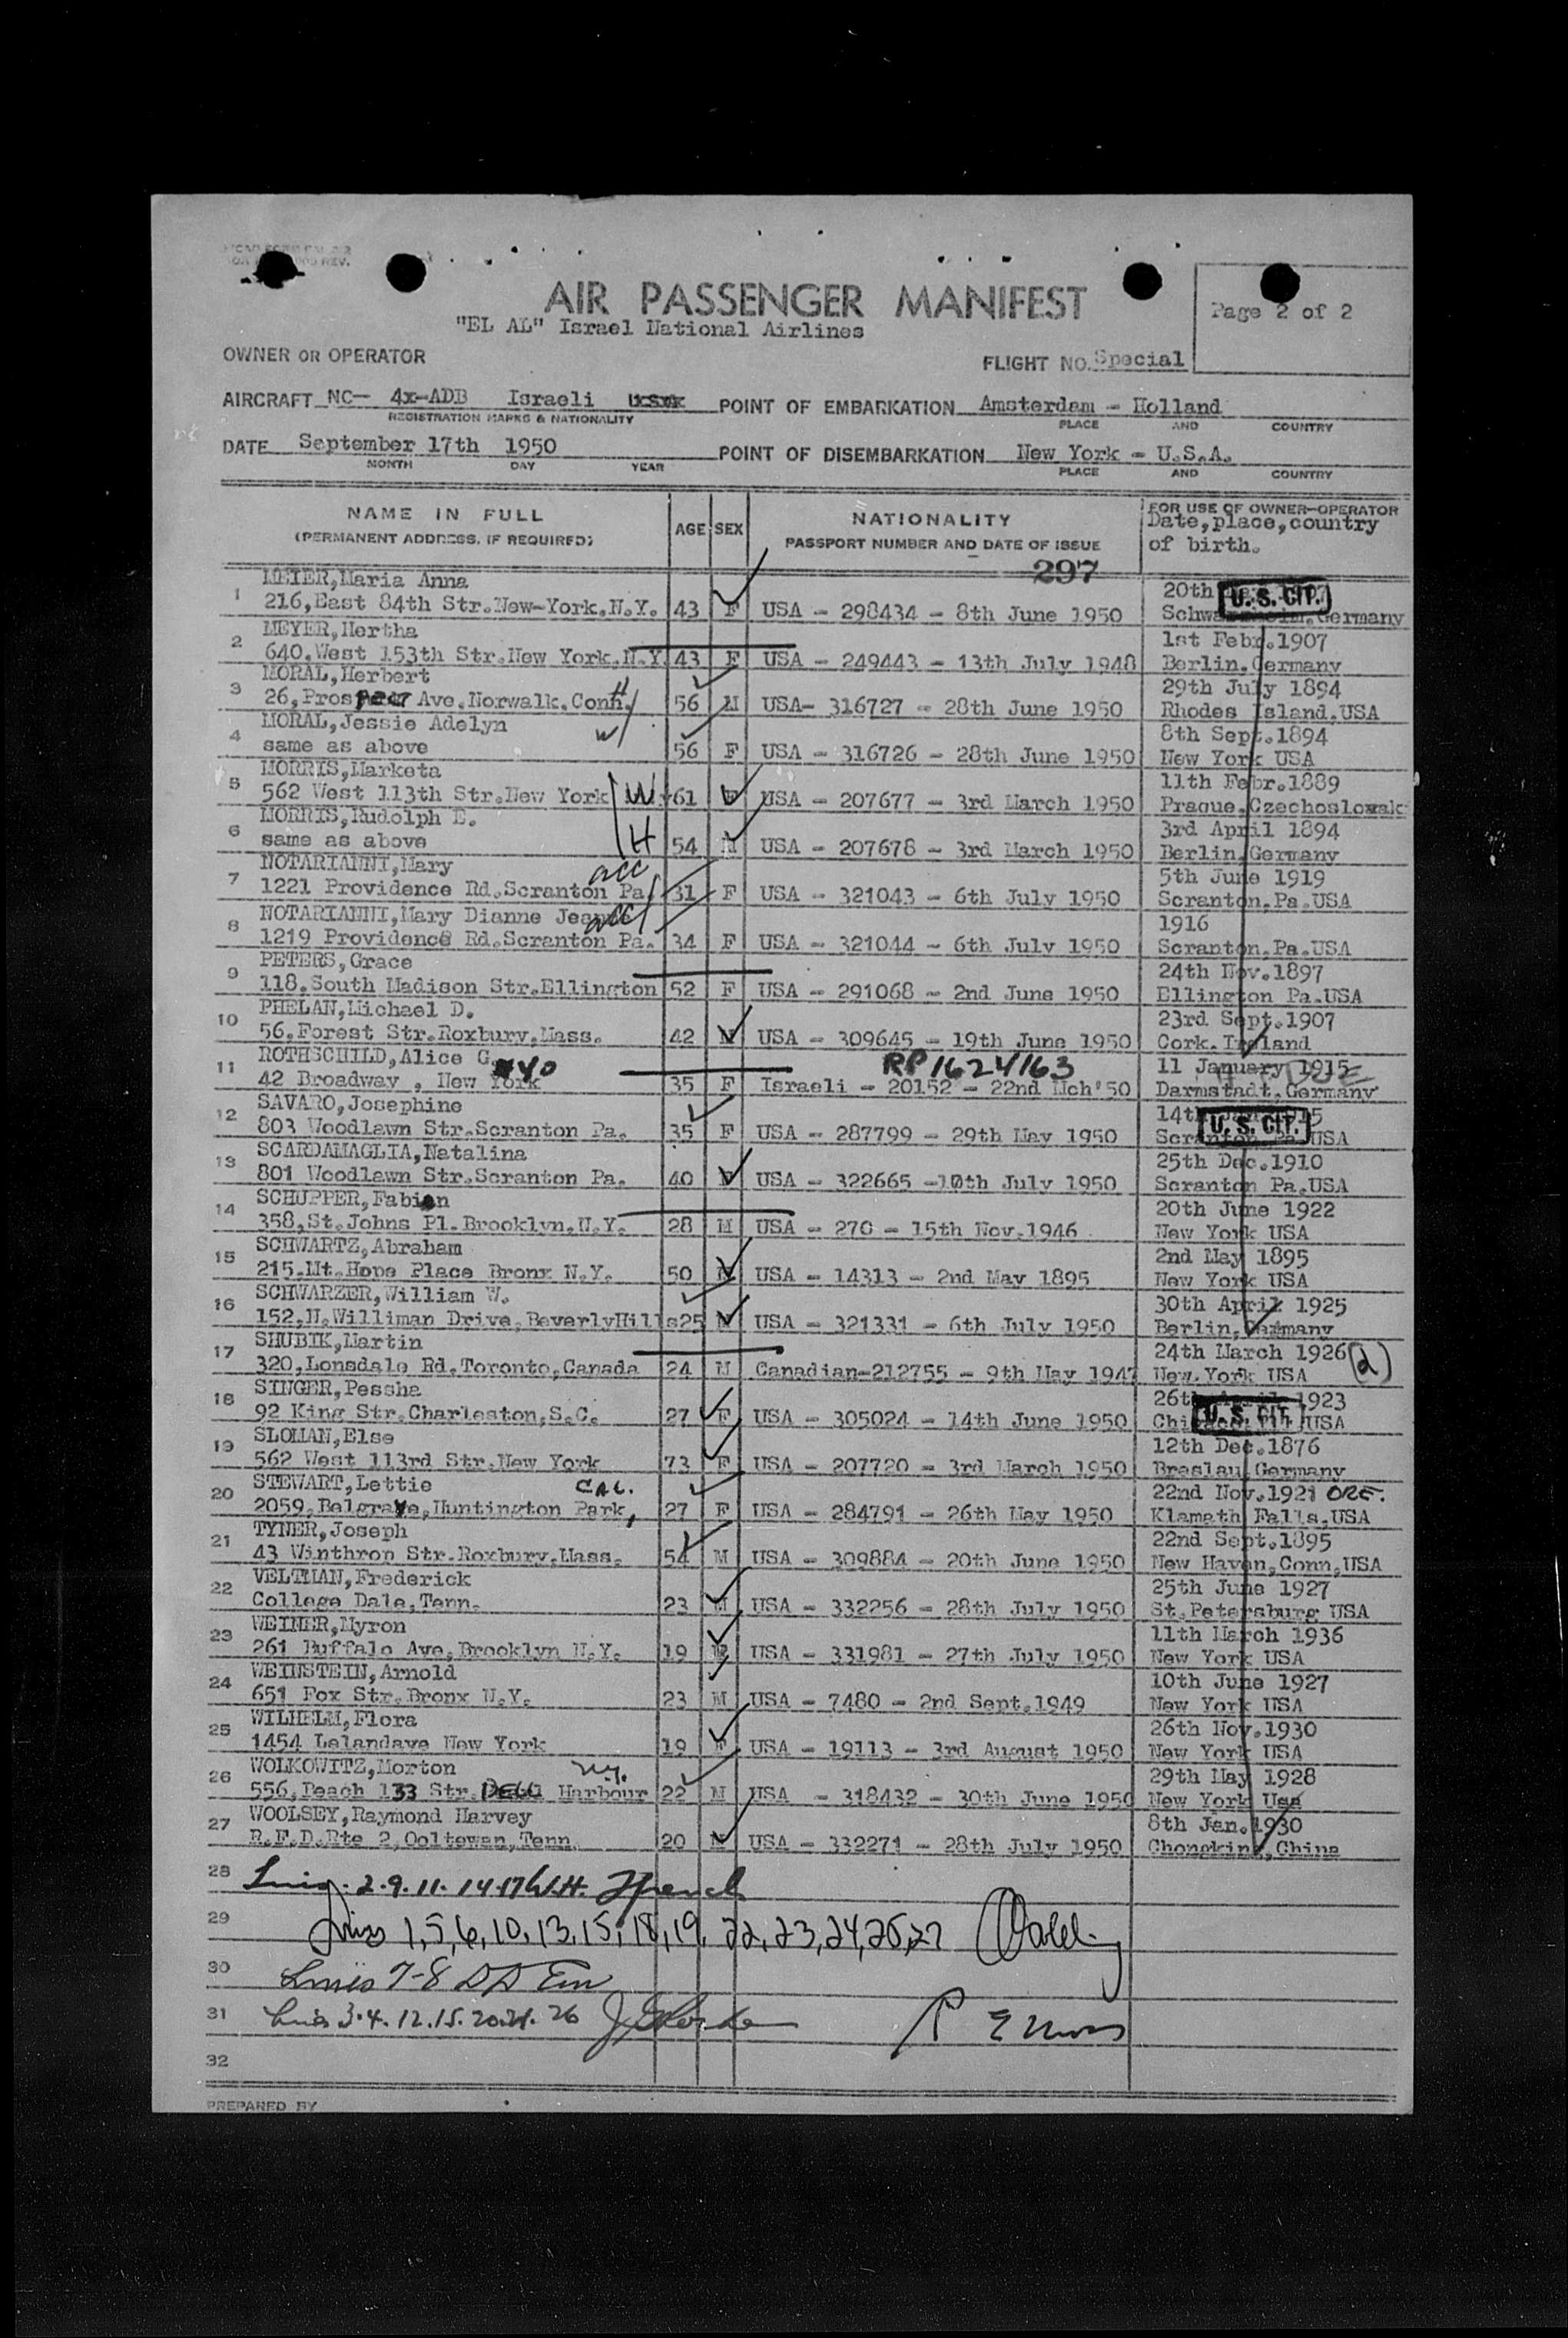 AIR PASSENGER MANIFEST
"EL AL" Israel National Airlines
Page 2 of 2
OWNER OR OPERATOR
FLIGHT NO. Special
AIRCRAFT NC- 4x-ADB Israeli
POINT OF EMBARKATION Amsterdam - Holland
REGISTRATION MARKS & NATIONALITY
PLACE AND COUNTRY
DATE September 17th 1950
POINT OF DISEMBARKATION New York - U.S.A.
MONTH DAY YEAR
PLACE AND COUNTRY
NAME IN FULL
(PERMANENT ADDRESS, IF REQUIRED)
AGE SEX
NATIONALITY
PASSPORT NUMBER AND DATE OF ISSUE
FOR USE OF OWNER-OPERATOR
Date, place, country
of birth.
297
1 MEIER, Maria Anna 20th U.S. CIT.
216, East 84th Str. New-York. N.Y. 43 F USA - 298434 - 8th June 1950 Germany
2 MEYER, Hertha 1st Febr. 1907
640. West 153th Str. New York. N.Y. 43 F USA - 249443 - 13th July 1948 Berlin. Germany
3 MORAL, Herbert H 29th July 1894
26, Prospect Ave. Norwalk. Conn. 56 M USA- 316727 - 28th June 1950 Rhodes Island. USA
4 MORAL, Jessie Adelyn W 8th Sept. 1894
same as above 56 F USA - 316726 - 28th June 1950 New York USA
5 MORRIS, Marketa 11th Febr. 1889
562 West 113th Str. New York W 61 F USA - 207677 - 3rd March 1950 Prague. Czechoslowak
6 MORRIS, Rudolph E. 3rd April 1894
same as above H 54 M USA - 207678 - 3rd March 1950 Berlin. Germany
7 NOTARIANNI, Mary acc 5th June 1919
1221 Providence Rd. Scranton Pa. 31 F USA - 321043 - 6th July 1950 Scranton. Pa. USA
8 NOTARIANNI, Mary Dianne acc 1916
1219 Providence Rd. Scranton Pa. 34 F USA - 321044 - 6th July 1950 Scranton. Pa. USA
9 PETERS, Grace 24th Nov. 1897
118. South Madison Str. Ellington 52 F USA - 291068 - 2nd June 1950 Ellington Pa. USA
10 PHELAN, Michael D. 23rd Sept. 1907
56, Forest Str. Roxbury. Mass. 42 M USA - 309645 - 19th June 1950 Cork. Ireland
11 ROTHSCHILD, Alice G. RP 1624163 11 January 1915
42 Broadway, New York 35 F Israeli - 20152 - 22nd Mch'50 Darmstadt. Germany
12 SAVARO, Josephine 14th U.S. CIT.
803 Woodlawn Str. Scranton Pa. 35 F USA - 287799 - 29th May 1950 Scranton Pa. USA
13 SCARDAMAGLIA, Natalina 25th Dec. 1910
801 Woodlawn Str. Scranton Pa. 40 F USA - 322665 -10th July 1950 Scranton Pa. USA
14 SCHUPPER, Fabian 20th June 1922
358, St. Johns Pl. Brooklyn. N.Y. 28 M USA - 270 - 15th Nov. 1946 New York USA
15 SCHWARTZ, Abraham 2nd May 1895
215. Mt. Hope Place Bronx N.Y. 50 M USA - 14313 - 2nd May 1895 New York USA
16 SCHWARZER, William W. 30th April 1925
152, N. Williman Drive, BeverlyHills 25 M USA - 321331 - 6th July 1950 Berlin, Germany
17 SHUBIK, Martin 24th March 1926 (2)
320, Lonsdale Rd. Toronto, Canada 24 M Canadian-212755 - 9th May 1947 New York USA
18 SINGER, Pessha 26th April 1923
92 King Str. Charleston, S.C. 27 F USA - 305024 - 14th June 1950 U.S. CIT. USA
19 SLOMAN, Else 12th Dec. 1876
562 West 113rd Str. New York 73 F USA - 207720 - 3rd March 1950 Breslau, Germany
20 STEWART, Lettie CAL. 22nd Nov. 1921 ORE.
2059, Belgrave, Huntington Park, 27 F USA - 284791 - 26th May 1950 Klamath Falls, USA
21 TYNER, Joseph 22nd Sept. 1895
43 Winthrop Str. Roxbury. Mass. 54 M USA - 309884 - 20th June 1950 New Haven, Conn, USA
22 VELTMAN, Frederick 25th June 1927
College Dale, Tenn. 23 M USA - 332256 - 28th July 1950 St. Petersburg USA
23 WEINER, Myron 11th March 1936
261 Buffalo Ave, Brooklyn N.Y. 19 USA - 331981 - 27th July 1950 New York USA
24 WEINSTEIN, Arnold 10th June 1927
651 Fox Str. Bronx N.Y. 23 M USA - 7480 - 2nd Sept. 1949 New York USA
25 WILHELM, Flora 26th Nov. 1930
1454 Lelandave New York 19 F USA - 19113 - 3rd August 1950 New York USA
26 WOLKOWITZ, Morton N.Y. 29th May 1928
556, Beach 133 Str. Harbour 22 M USA - 318432 - 30th June 1950 New York Usa
27 WOOLSEY, Raymond Harvey 8th Jan. 1930
R.F.D. Rte 2, Ooltewan, Tenn. 20 M USA - 332271 - 28th July 1950 Chongking, China
28 2. 9. 11. 14. 17 W.H.
29 Lines 1, 5, 6, 10, 13, 15, 18, 19, 22, 23, 24, 25, 27
30 Lines 7-8
31 Lines 3. 4. 12. 15. 20. 21. 26
32
PREPARED BY